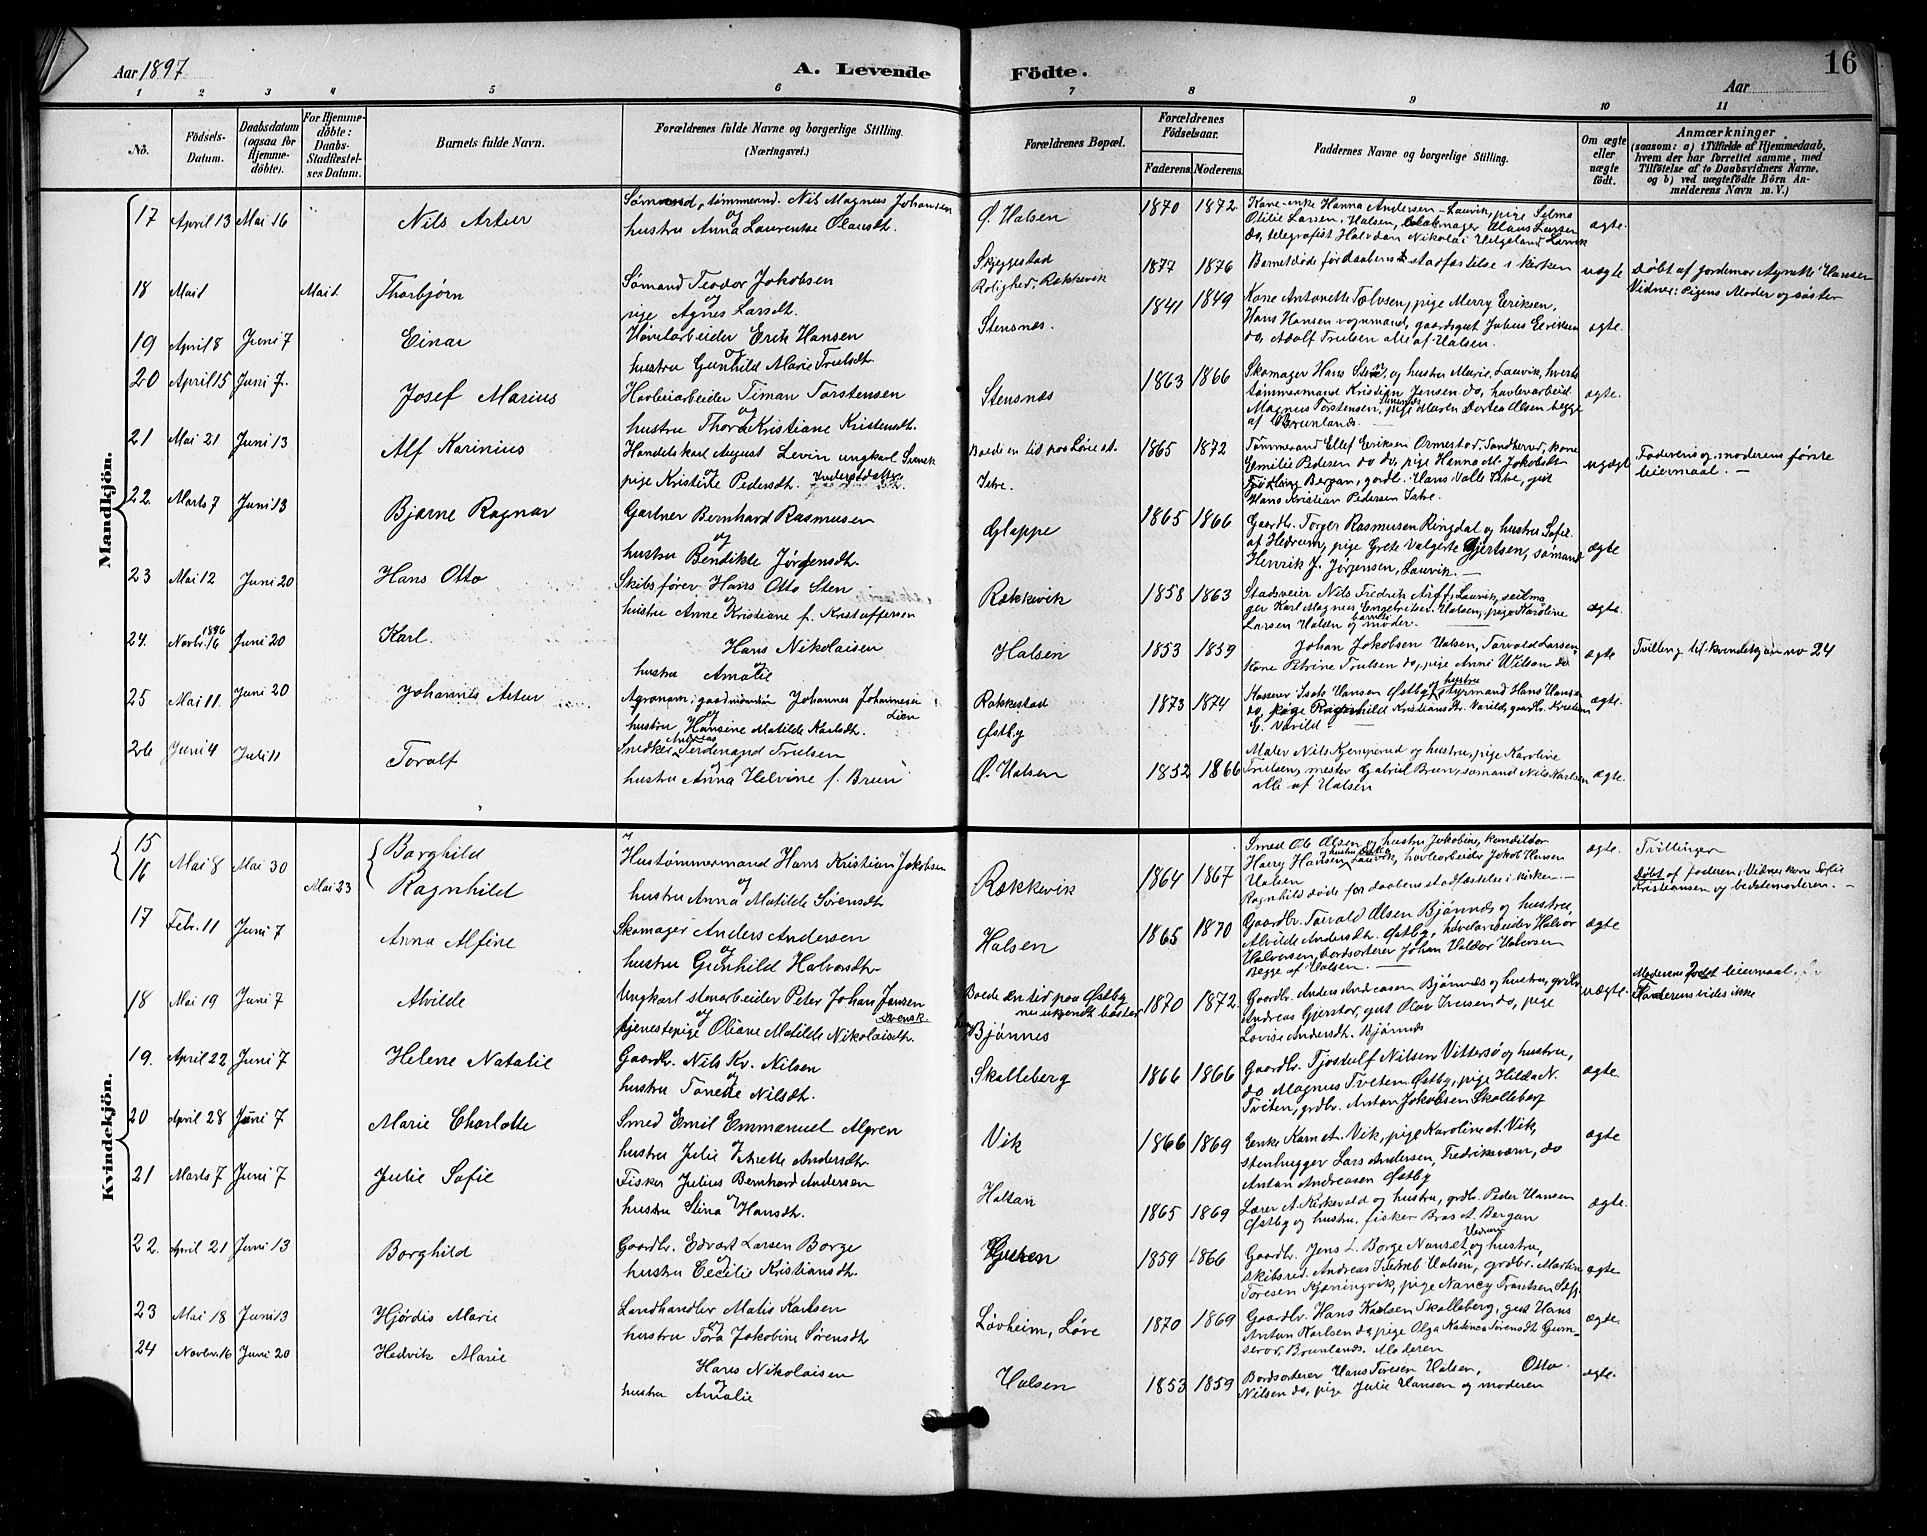 Aar 1897
A. Levende
Födte.
Aar
16
1 2 3 4 5 6 7 8 9 10 11
No.
Födsels-Datum.
Daabsdatum (ogsaa for Hjemme-döbte).
For Hjemme-döbte: Daabs-Stadfæstel-ses Datum.
Barnets fulde Navn.
Forældrenes fulde Navne og borgerlige Stilling.
(Næringsvei.)
Forældrenes Bopæl.
Forældrenes Födselsaar.
Faderens. Moderens.
Faddernes Navne og borgerlige Stilling.
Om ægte eller uægte födt.
Anmærkninger
(saasom: a) i Tilfælde af Hjemmedaab, hvem der har forrettet samme, med Tilföielse af to Daabsvidners Navne, og b) ved uægtefödte Börn An-melderens Navn m. V.)
Mandkjön.
17 April 13 Mai 16 Nils Artur
Sømand, tømmermd. Nils Magnus Johansen
og
hustru Anna Laurentse Olausdt.
Ø. Halsen 1870 1872
Kone-enke Hanna Andersen-Laurvik, pige Selma
Otilie Larsen, Halsen, Olaus Larsen
do, telegrafist Halvdan Nikolai Helgeland Larvik
ægte.
18 Mai 1 Mai 1. Thorbjørn
Sømand Teodor Jakobsen
og
pige Agnes Larsdt.
Skjeggestad
Rolighed, Rækkevik
1877 1876
Barnet døde før daabens stadfæstelse i kirken
uægte
Døbt af jordemor Agnette Hansen
Vidner: Pigens Moder og søster
19 April 8 Juni 7 Einar
Høvlarbeider Erik Hansen
og
hustru Gunhild Marie Trulsdt.
Stensnæs. 1841 1849
Kone Antonette Tælvsen, pige Merry Eriksen,
Hans Hansen vognmand, gaardsgut Julius Eriksen
do, Adolf Trulsen alle af Halsen.
ægte.
20 April 15 Juni 7. Josef Marius
Høvleriarbeider Timan Torstensen
og
hustru Thora Kristiane Kristensdt.
Stensnæs 1863 1866
Skomager Hans og hustru Marie, Laurvik,
tømmermand Kristian Jensen do, høvlerarbeid
Magnus Torstensen, Stensnæs, pige Maren Dortea Olsen begge
af Brunlands.
ægte.
21 Mai 21 Juni 13 Alf Karinius
Handelskarl August Levin ungkarl Svensk
og
pige Kristine Pedersdt.
Boede en tid paa Løve st.
Istre.
1865 1872
Tømmermand Ellef Eriksen Ormestad, Sandherred, kone
Emilie Pedersen do do, pige Hanna M. Jakobsdt
Bergan, gardb. Hans Valle Istre, gut
Hans Kristian Pedersen Istre.
uægte
Faderens og moderens første
leiermaal. —
22. Marts 7 Juni 13 Bjarne Ragnar
Gartner Bernhard Rasmusen
og
hustru Bendikte Jørgensdt.
Gloppe 1865 1866
Gaardbr. Torger Rasmusen Ringdal og hustru Sofie
af Hedrum, pige Grete Valgerte Gjertsen, sømand
Henrik J. Jørgensen, Laurvik. —
ægte
23 Mai 12 Juni 20 Hans Otto
Skibsfører Hans Otto Sten
og
hustru Anne Kristiane f. Kristoffersen
Rækkevik 1858 1863
Nils Fredrik Arff, Laurvik, seilma
ger Karl Magnus Engebretsen Halsen, pige Karoline
Larsen Halsen og barnets moder.
ægte.
24. Novbr. 16 1896 Juni 20 Karl.
Hans Nikolaisen
og
hustru Amalie
Halsen 1853 1859
Johan Jakobsen Halsen, Torvald Larsen,
Kone Petrine Trulsen do, pige Anni Wilson do
ægte
Tvilling til kvindekjøn no 24
25 Mai 11. Juni 20 Johannes Artur
Agronom, Johannes Johannesen
Lien
og
hustru Hansine Matilde Karlsdt.
Rakkestad
Østby
1873 1874
Kasserer Isak Hansen Østby og hustru, styrmand Hans Hansen
do, pige Ragnhild Kristiansdt. Varild, gaardbr. Kristian
E. Varild
ægte.
26 Juni 4 Juli 11 Toralf
Snedker Andreas Ferdinand Trulsen
og
hustru Anna Helvine f. Brun
Ø. Halsen 1852 1866
Maler Nils Kjemperud og hustru, pige Karoline
Trulsen, mester Gabriel Brun, sømand Nils Karlsen
alle af Halsen
ægte.
Kvindekjön.
15
16 Mai 8 Mai 30 Mai 23
Borghild
Ragnhild
Hustømmermand Hans Kristian Jakobsen
og
hustru Anna Matilde Sørensdt
Rækkevik 1864 1867
Smed Ole Olsen og hustru Jakobine, konditor
Harry Hansen og hustru Laurvik, høvlearbeider Jakob Hansen
Halsen
Ragnhild døde før daabens stadfæstelse i kirken. —
ægte.
Tvillinger
Døbt af faderen; Vidner kone Sofie
Kristiansen og bedstemoderen. —
17 Febr. 11 Juni 7 Anna Alfine
Skomager Anders Andersen
og
hustru Gunhild Halvorsdtr.
Halsen 1865 1870
Gaardbr. Torvald Olsen Bjønnes og hustru,
Alvilde Andersdt. Østby, høvelarbeider Halvor
Halvorsen, bordsorterer Johan Valdor Halvorsen
Begge af Halsen. —
ægte
18 Mai 19 Juni 7 Alvilde
Ungkarl stenarbeider Peter Johan Jansen
Svensk.
og
tjenestepige Oliane Matilde Nikolaisdtr.
Boede en tid paa Østby
nu ukjendt bosted
Bjønnes
1870 1872
Gaardbr. Anders Andreasen Bjønnes og hustru, grdbr
Andreas Gjerstor, gut Olav Iversen do, pige
Lovise Andersdt. Bjønnes
uægte.
Moderens 2det leiermaal.
Faderens vides ikke
19. April 22 Juni 7 Helene Natalie
Gaardbr. Nils Kr. Nilsen
og
hustru Tonette Nilsdt.
Skalleberg 1866 1866
Gaardbr. Tjostulf Nilsen Vittersø og hustru,
do Magnus Tveten Østby, pige Hilda N.
Tveten, grdbr. Anton Jakobsen Skalleberg
ægte.
20 April 28 Juni 7 Marie Charlotte
Smed Emil Emmanuel Algren
og
hustru Julie Anette Andersdtr.
Vik 1866 1869
Enke Karn A. Vik, pige Karoline A. Vik,
stenhugger Lars Andersen, Fredriksværn, do
Anton Andreasen Østby
ægte
21 Marts 7 Juni 7 Julie Sofie
Fisker Julius Bernhard Andersen
og
hustru Stina Hansdt.
Haltan 1865 1869
Lærer A. Kirkevold og hustru, grdbr. Peder Hansen
Østby og hustru, fisker Bras A. Bergan
ægte.
22. April 21 Juni 13 Borghild
Gaardbr. Edvart Larsen Borge
og
hustru Cecilie Kristiansdt.
1859 1866
Gaardbr. Jens L. Borge Nanset Hedrum og hustru,
skibsred. Andreas Halsen, grdbr. Martin
Toresen Kjønningvik, pige Nancy Frantsen
ægte
23 Mai 18 Juni 13 Hjørdis Marie
Landhandler Matis Karlsen
og
hustru Tora Jakobine Sørensdt
Løvheim, Løve 1870 1869
Gaardbr. Hans Karlsen Skalleberg, gut Hans
Anton Karlsen do, pige Olga Katinca Sørensdt Gum-
serød, Brunlands. Moderen
ægte.
24 Novbr. 16 Juni 20 Hedvik Marie
Hans Nikolaisen
og
hustru Amalie
Halsen 1853 1859
Bordsorterer Hans Toresen Halsen, Otto
Nilsen do, pige Julie Hansen og moderen
ægte.